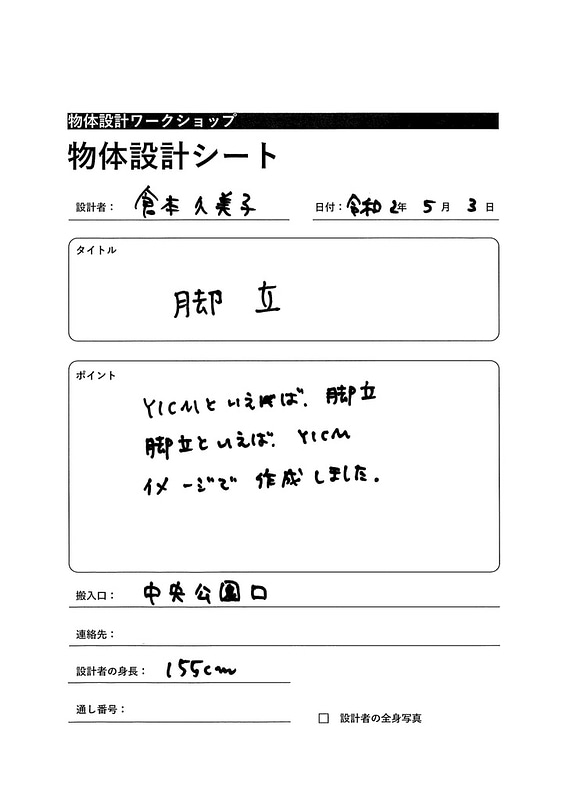 物体設計ワークショップ
物体設計シート
設計者： 倉本久美子
日付：令和2年 5月 3日
タイトル
脚立
ポイント
YICMといえば、脚立
脚立といえば、YICM
イメージで 作成しました。
搬入口： 中央公園口
連絡先：
設計者の身長： 155cm
通し番号：
□ 設計者の全身写真